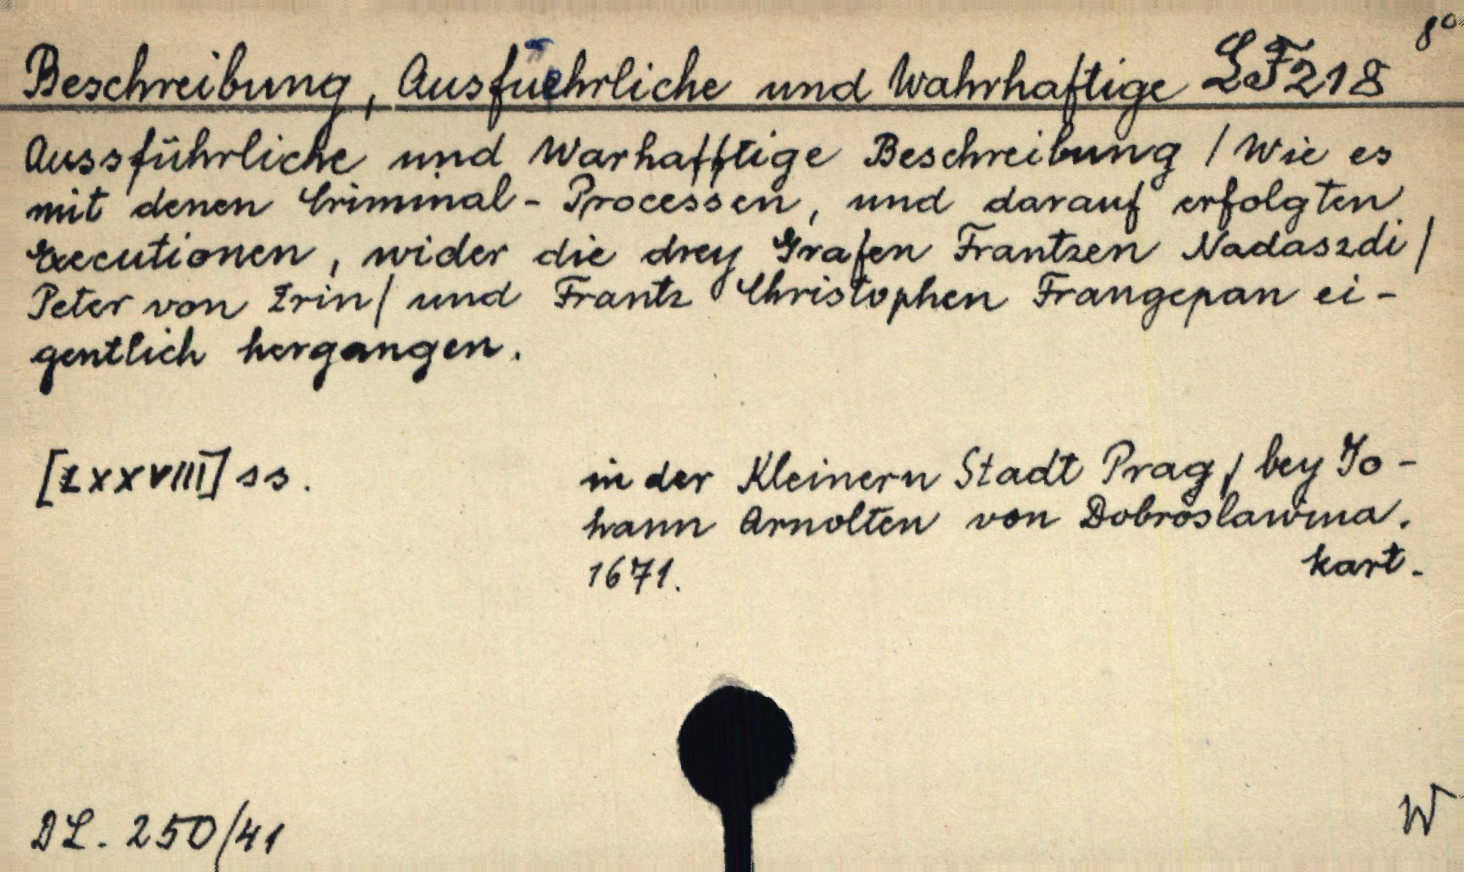 8°
Beschreibung, Ausfuehrliche und Wahrhaftige LF218
Aussführliche und Warhafftige Beschreibung / Wie es
mit denen Criminal-Processen, und darauf erfolgten
Executionen, wider die drey Grafen Frantzen Nadaszdi /
Peter von Zrin / und Frantz Christophen Frangepan ei-
gentlich hergangen.
[LXXVIII] ss. in der Kleinern Stadt Prag / bey Jo-
hann Arnolten von Dobroslawina.
1671. kart.
DL. 250/41 W